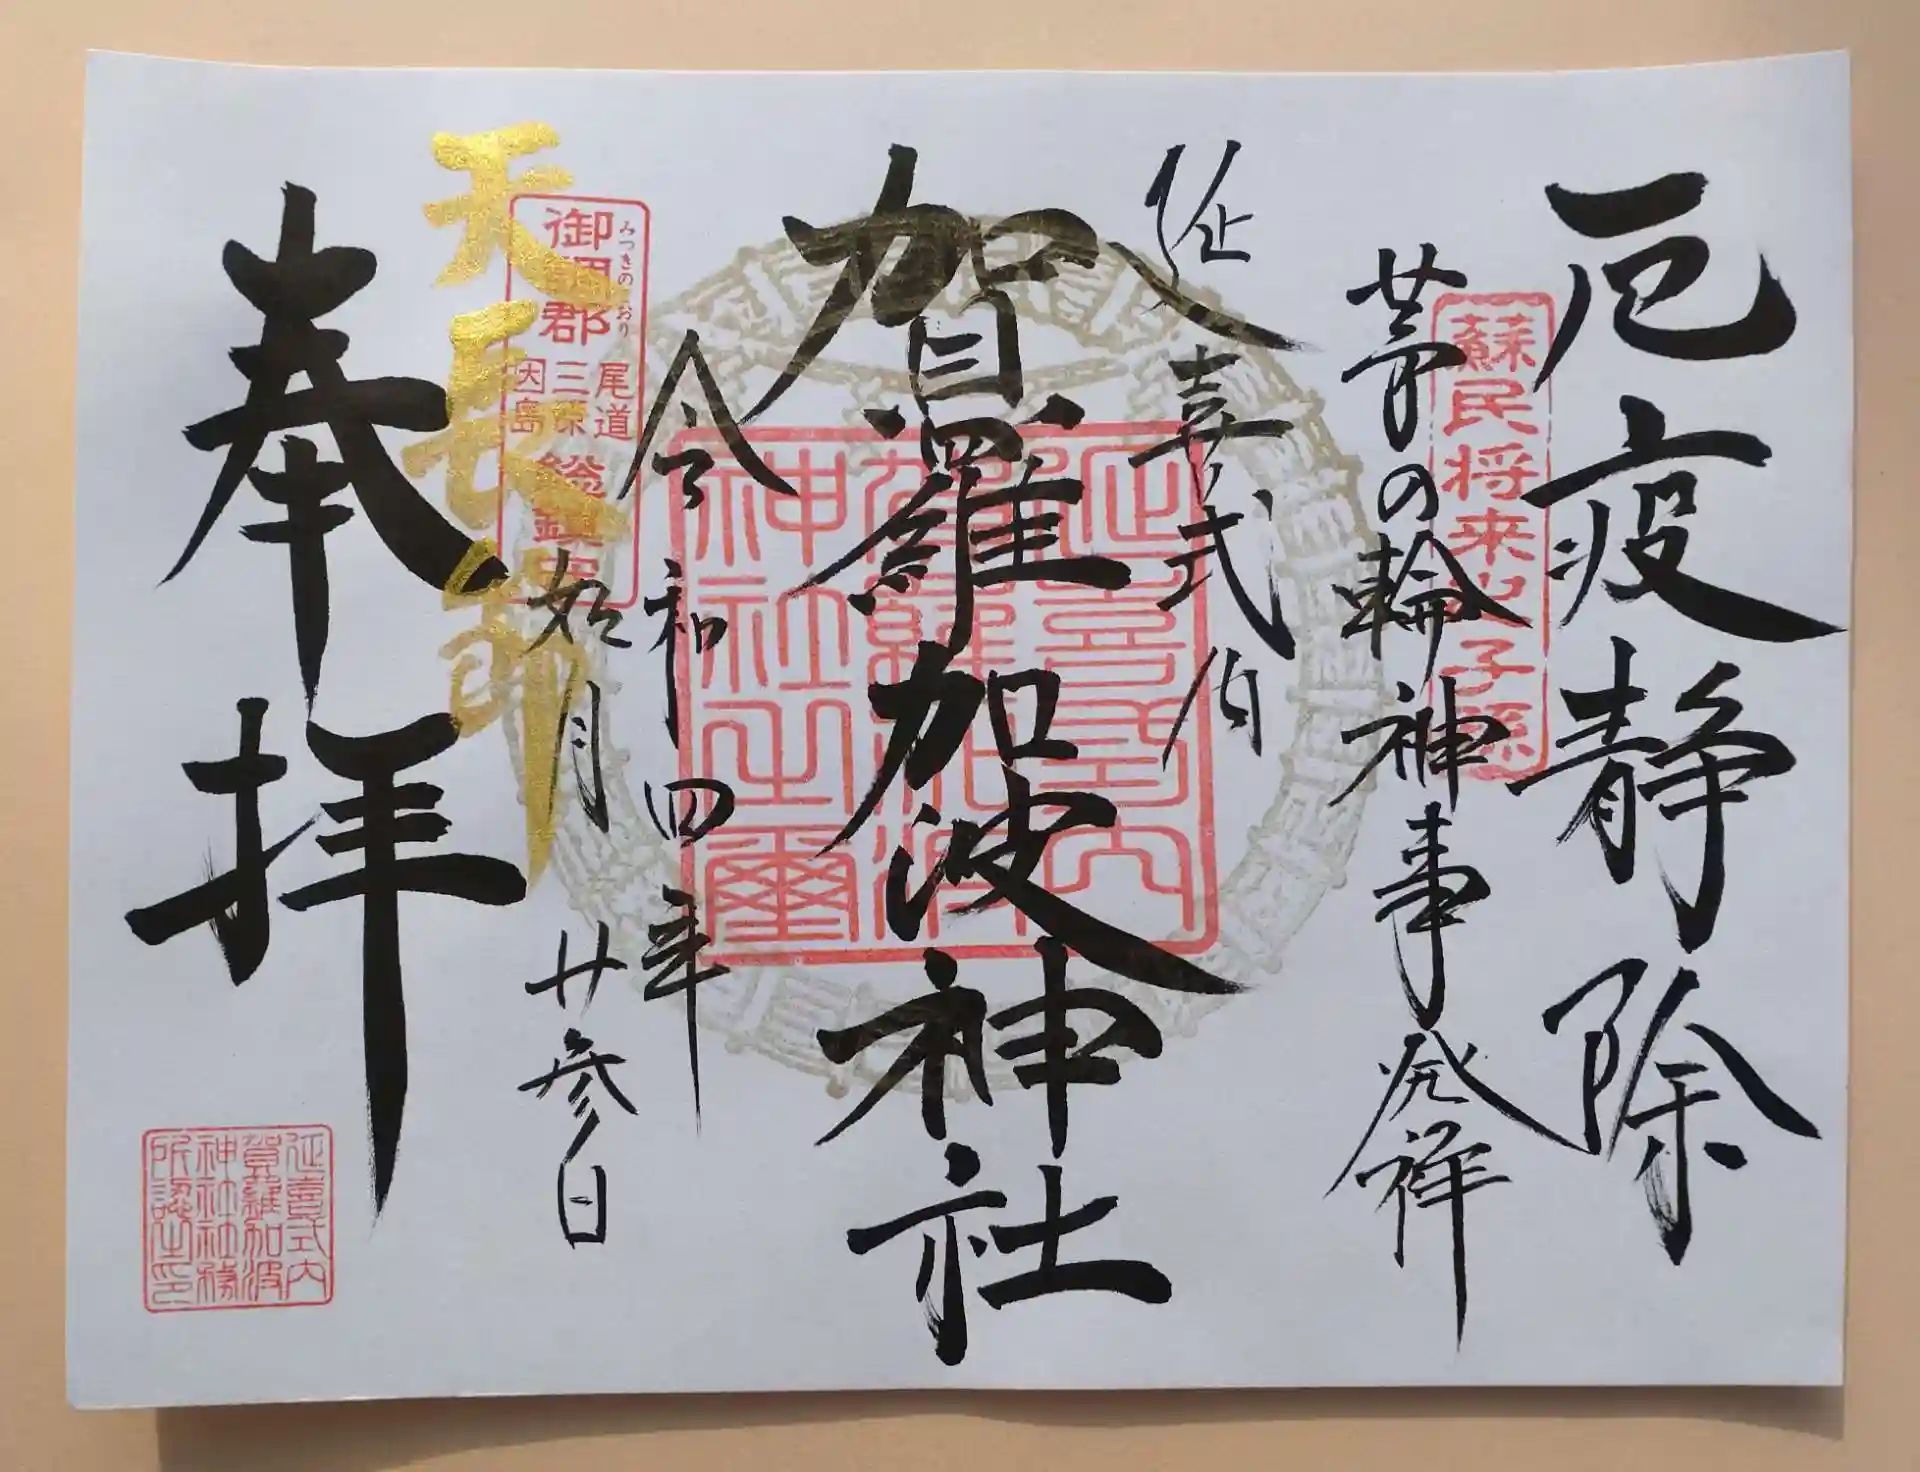 厄疫静除
蘇民将来子孫
茅の輪神事発祥
延喜式内
賀羅加波神社
延喜式内
賀羅加波
神社之璽
令和四年
如月廿参日
みつきのこおり
御調郡
尾道
三原
因島
総鎮守
天長節
奉拝
延喜式内
賀羅加波
神社社務
所認之印